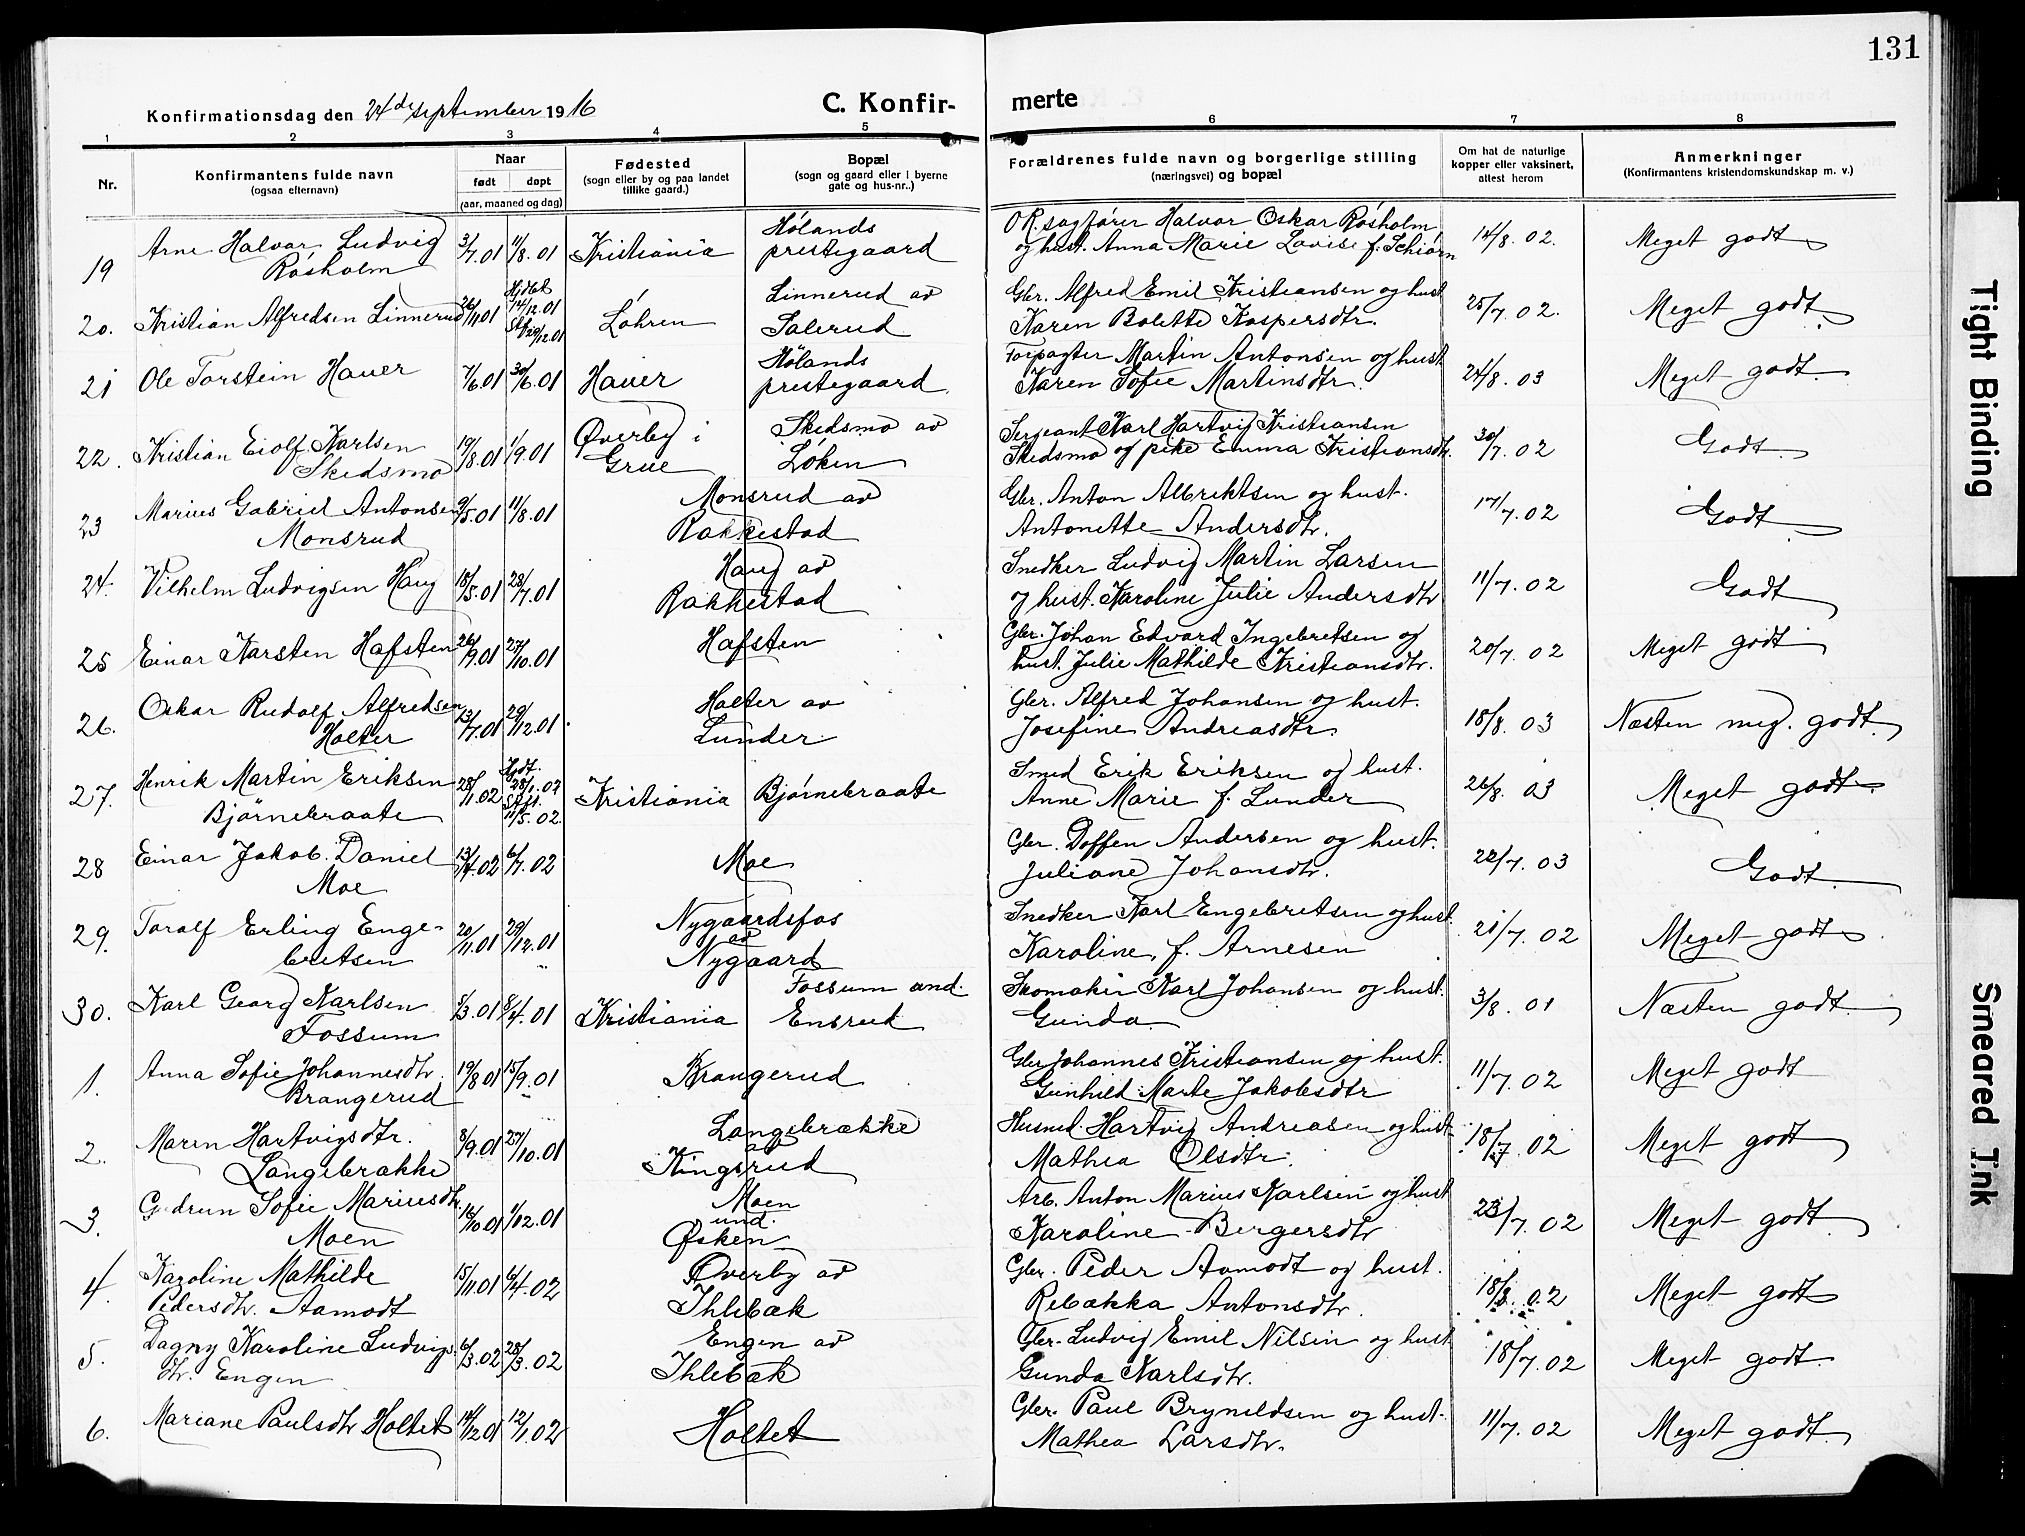 131
Konfirmationsdag den 24de september 1916
C. Konfir-
merte
1 2 3 4 5 6 7 8
Nr.
Konfirmantens fulde navn
(ogsaa efternavn)
Naar
født døpt
(aar, maaned og dag)
Fødested
(sogn eller by og paa landet
tillike gaard.)
Bopæl
(sogn og gaard eller i byerne
gate og hus-nr..)
Forældrenes fulde navn og borgerlige stilling
(næringsvei) og bopæl
Om hat de naturlige
kopper eller vaksinert,
attest herom
Anmerkninger
(Konfirmantens kristendomskundskap m. v.)
19 Arne Halvar Ludvig
Røsholm
3/7.01 11/8.01 Kristiania
Hølands
prestegaard
OR.sagfører Halvor Oskar Røsholm
og hust. Anna Marie Lovise f. Schiørn
14/8.02. Meget godt
20. Kristian Alfredsen Linnerud
26/11.01 Hjdbt
14/12.01
29/12.01
Løhren
Linnerud av
Solerud
Gbr. Alfred Emil Kristiansen og hust
Karen Bolette Kaspersdtr.
25/7.02. Meget godt
21 Ole Torstein Hauer
7/6.01 30/6.01 Hauer
Hølands
prestegaard.
Forpagter Martin Antonsen og hust
Karen Sofie Martinsdtr.
24/8.03 Meget godt.
22. Kristian Eiolf Karlsen
Skedsmo
19/8.01 1/9.01
Øverby i
Grue
Skedsmo av
Løken
Sergeant Karl Hartvig Kristiansen
Skedsmo og pike Emma Kristiansdtr.
30/7.02 Godt.
23 Marius Gabriel Antonsen
Monsrud
9/5.01 11/8.01
Monsrud av
Rakkestad
Gbr. Anton Albriktsen og hust.
Antonette Andersdtr.
17/7.02 Godt
24. Vilhelm Ludvigsen Haug
18/5.01 28/7.01
Haug av
Rakkestad
Snedker Ludvig Martin Larsen
og hust. Karoline Julie Andersdtr
11/7.02 Godt
25 Einar Karsten Hafsten
26/9.01 27/10.01 Hafsten
Gbr. Johan Edvard Ingebretsen og
hust. Julie Mathilde Kristiansdtr.
20/7.02 Meget godt
26. Oskar Rudolf Alfredsen
Holter
23/7.01 29/12.01.
Holter av
Lunder
Gbr. Alfred Johansen og hust.
Josefine Andreasdtr.
18/8.03 Næsten meg. godt.
27. Henrik Martin Eriksen
Bjørnebraate
28/1.02 Hjdt.
28/1.02
11/5.02.
Kristiania Bjørnebraate
Smed Erik Eriksen og hust.
Anne Marie f. Lunder
26/8.03 Meget godt.
28 Einar Jakob Daniel
Moe
13/4.02 6/7.02 Moe
Gbr. Doffen Andersen og hust.
Juliane Johansdtr.
22/7.03 Godt.
29. Toralf Erling Enge-
bretsen
20/11.01 29/12.01
Nygaardsfos
av
Nygaard
Snedker Karl Engebretsen og hust.
Karoline f. Arnesen
21/7.02 Meget godt
30. Karl Georg Karlsen
Fossum
5/3.01 8/4.01 Kristiania
Fossum und.
Ensrud
Skomaker Karl Johansen og hust.
Gunda.
3/8.01 Næsten godt.
1. Anna Sofie Johannesdtr.
Brangerud
19/8.01 15/9.01 Brangerud
Gbr Johannes Kristiansen og hust.
Gunhild Marte Jakobsdtr
11/7.02 Meget godt
2. Maren Hartvigsdtr.
Langebrække
8/9.01 27/10.01
Langebrække
av
Kingsrud
Husmd. Hartvig Andreasen og hust
Mathea Olsdtr.
18/7.02 Meget godt
3. Gudrun Sofie Mariusdtr.
Moen
16/10.01 1/12.01
Moen
und.
Øsken
Arb. Anton Marius Karlsen og hust
Karoline Bergersdtr
23/7.02 Meget godt
4. Karoline Mathilde
Pedersdtr. Aamodt
15/11.01 6/4.02
Øverby av
Ihlebæk
Gbr. Peder Aamodt og hust.
Rebækka Antonsdtr.
18/8.02 Meget godt
5. Dagny Karoline Ludvigs
dtr. Engen
6/3.02 28/3.02
Engen av
Ihlebæk
Gbr. Ludvig Emil Nilsen og hust
Gunda Karlsdtr.
18/7.02 Meget godt
6. Mariane Paulsdtr Holtet
14/12.01 12/1.02 Holtet
Gbr. Paul Brynildsen og hust.
Mathea Larsdtr.
11/7.02 Meget godt.
Tight Binding
Smeared Ink